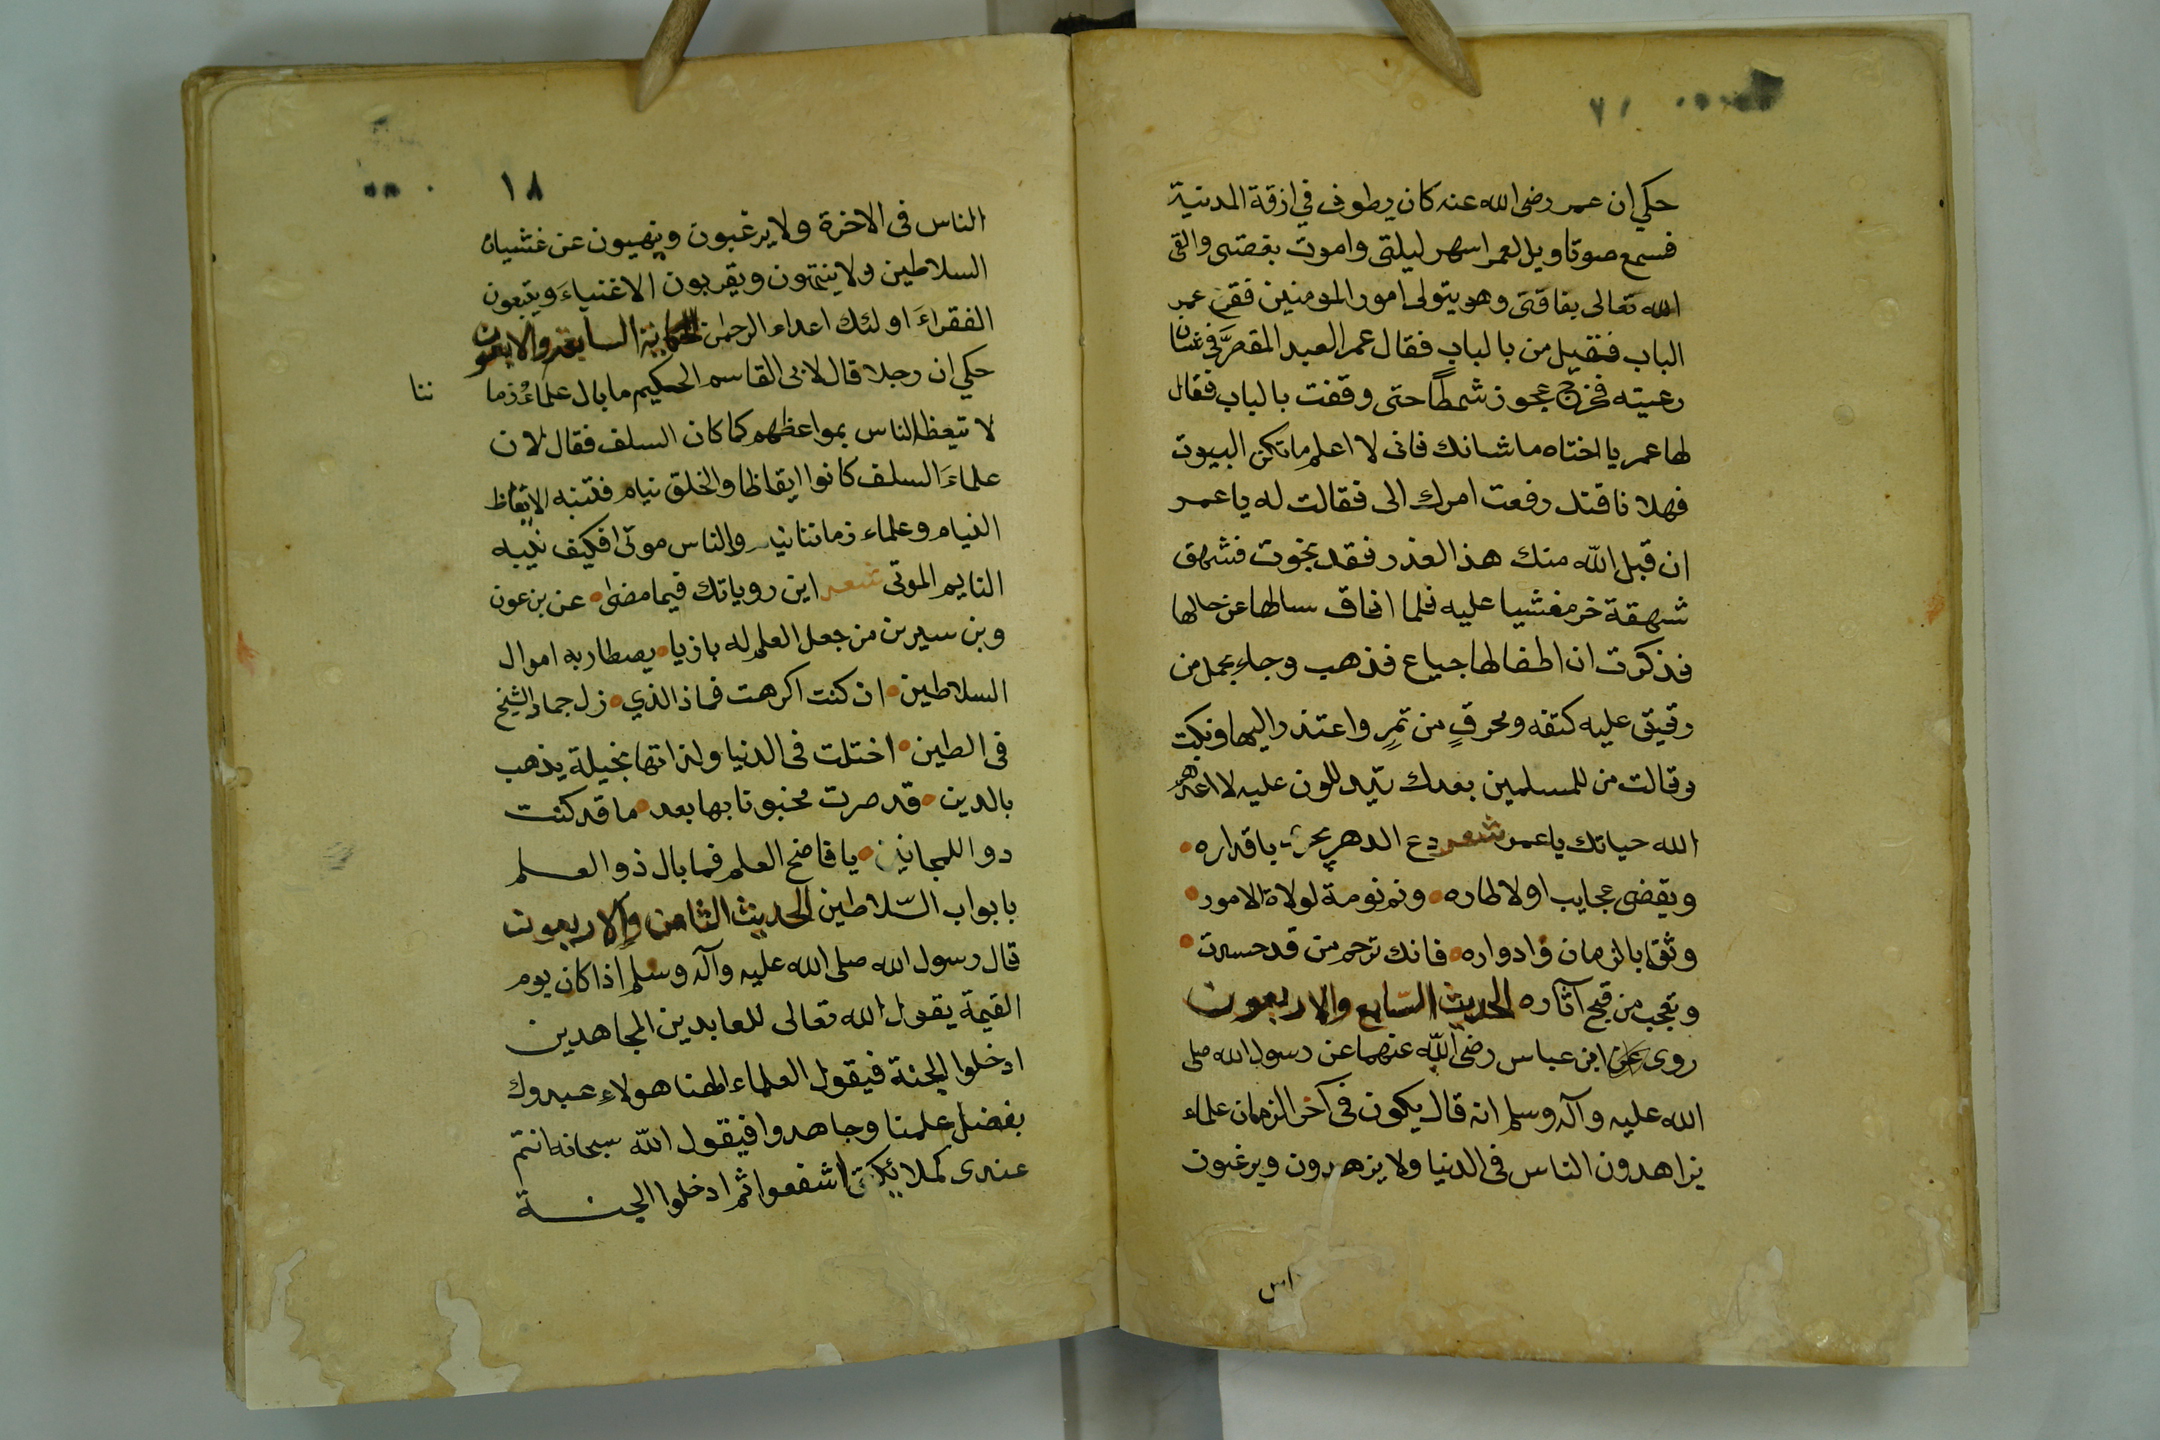 حكي ان عمر رضى الله عنه كان يطوف في ازقة المدنية
فسمع صوتا ويل لعمر اسهر ليلتى واموت بغصتى والقى
الله تعالى بفاقتى وهو يتولى امور المومنين فقرع عمر
الباب فقيل من بالباب فقال عمر العبد المقصر في شان
رعيته فخرج عجوز شمطا حتى وقفت بالباب فقال
لها عمر يا اختاه ما شانك فانى لا اعلم ما تكن البيوت
فهلا ناقتك رفعت امرك الى فقالت له يا عمر
ان قبل الله منك هذا العذر فقد نجوت فشهق
شهقة خر مغشيا عليه فلما افاق سالها عن حالها
فذكرت ان اطفالها جياع فذهب وجاء بحمل من
رقيق عليه كتفه ومحرف من تمر واعتذر اليها وبكت
وقالت من للمسلمين بعدك
الله حياتك يا عمر شعر دع الدهر يجرى باقداره
ويقضى عجايب اولاطاره ونم نومة لولاة الامور
وثق بالزمان وادواره فانك ترحم من قد حسدت
وتعجب من قبح آثاره الحديث السابع والاربعون
روى عن ابن عباس رضى الله عنهما عن رسول الله صلى
الله عليه وآله وسلم انه قال يكون فى آخر الزمان علماء
يزاهدون الناس فى الدنيا ولا يزهدون ويرغبون
الناس
١٨
الناس فى الاخرة ولا يرغبون وينهيون عن غشيان
السلاطين ولا ينتهون ويقربون الاغنياء ويتبعون
الفقراء اولئك اعداء الرحمان الحكاية السابعة والاربعون
حكي ان رجلا قال لابى القاسم الحكيم ما بال علماء زما
ننا
لا تتعظ الناس بمواعظهم كما كان السلف فقال لان
علماء السلف كانوا ايقاظا والخلق نيام فتنبه الايقاظ
النيام وعلماء زماننا نيام والناس موتى فكيف ينبه
النايم الموتى شعر اين روياتك فيما مضى عن بن عون
وبن سيرين من جعل العلم له بازيا يصطاد به اموال
السلاطين ان كنت اكرهت فماذا الذي زل حمار الشيخ
فى الطين اختلت فى الدنيا ولذاتها بحيلة يذهب
بالدين قد صرت مجنونا بها بعد ما قد كنت
دوا للمجانين يا فاضح العلم فما بال ذو العلم
بابواب السلاطين الحديث الثامن والاربعون
قال رسول الله صلى الله عليه وآله وسلم اذا كان يوم
القيمة يقول الله تعالى للعابدين المجاهدين
ادخلوا الجنة فيقول العلماء الهنا هولاء عبدوك
بفضل علمنا وجاهدوا فيقول الله سبحانه انتم
عندى كملائكتى اشفعوا ثم ادخلوا الجنة